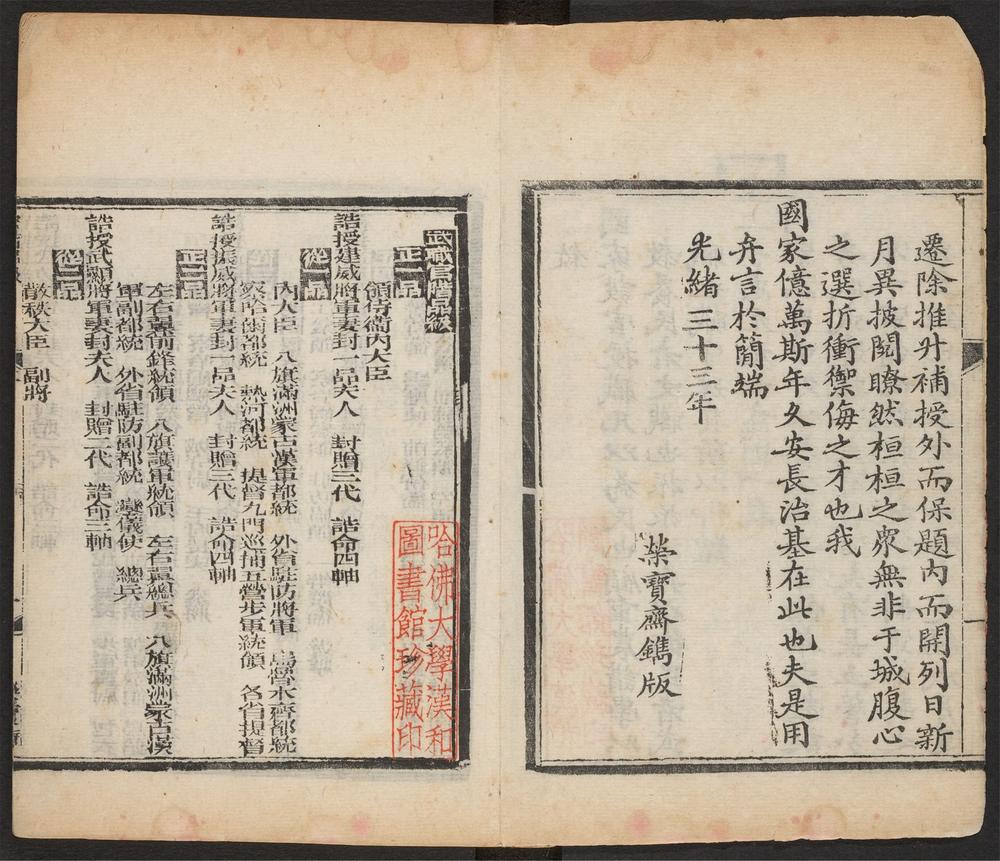 遷除推升補授外而保題內而開列日新
月異披閱瞭然桓桓之衆無非干城腹心
之選折衝禦侮之才也我
國家億萬斯年久安長治基在此也夫是用
弁言於簡端
光緒三十三年
榮寶齋鐫版
哈佛大學漢和
圖書館珍藏印
武職官階品級
正一品
領侍衛內大臣
誥授建威將軍妻封一品夫人 封贈三代 誥命四軸
從一品
內大臣 八旗滿洲蒙古漢軍都統 外省駐防將軍 烏魯木齊都統
察哈爾都統 熱河都統 提督九門巡捕五營步軍統領 各省提督
誥授振威將軍妻封一品夫人 封贈三代 誥命四軸
正二品
左右翼前鋒統領 八旗護軍統領 左右翼總兵 八旗滿洲蒙古漢
軍副都統 外省駐防副都統 鑾儀使 總兵
誥授武顯將軍妻封夫人 封贈二代 誥命三軸
從二品
散秩大臣 副將